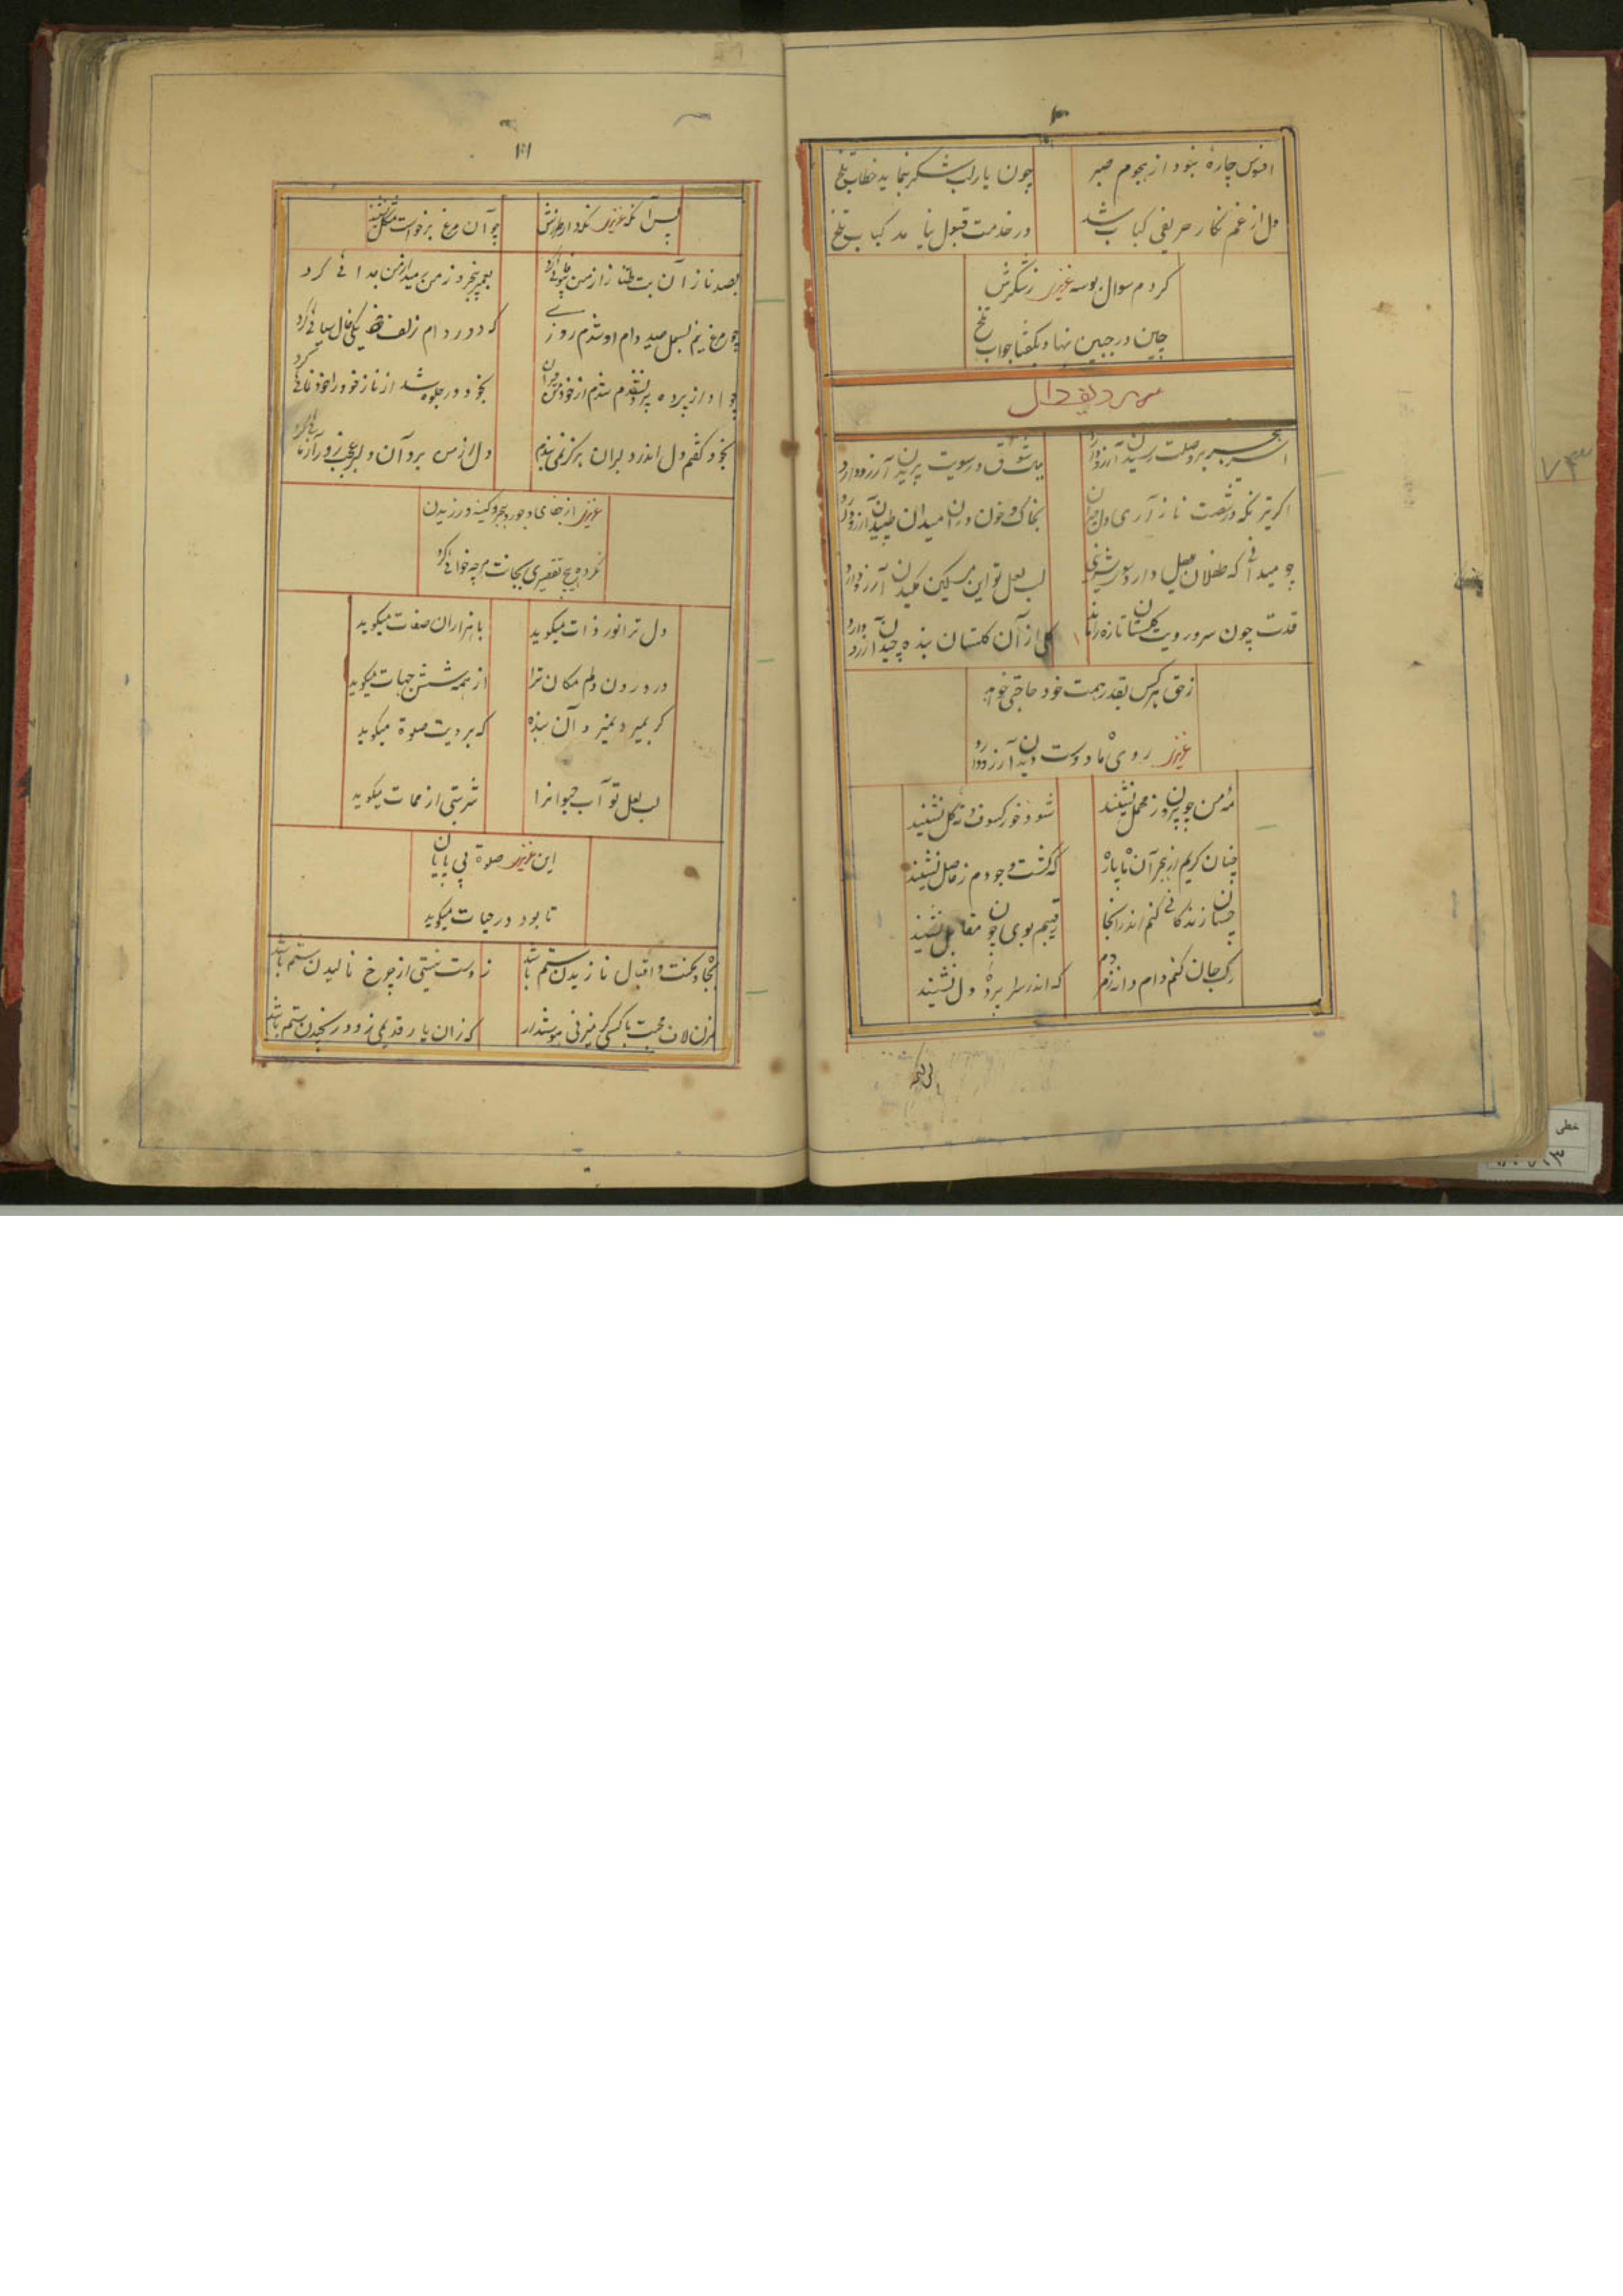 افسوس چارهٔ نبود از هجوم صبر
چون یار لب شکر بنماید خطاب تلخ
دل از غم نکار حریفی کباب شد
در خدمت قبول نیامد کباب تلخ
کردم سوال بوسه عزیز ز شکرش
چین در جبین نهاد بگفتا جواب تلخ
ردیف دال
وصلت رسیدن آرزو دارد
در سویت پریدن آرزو دارد
اکر تیر نکه در شصت ناز آری
بخاک و خون در آن میدان طپیدن آرزو دارد
چو میدانی که طفلان میل دارد سوی شیرینی
لب لعل تو این مسکین مکیدن آرزو دارد
قدت چون سرو رویت کلستان تازه را ماند
کلی از آن کلستان بنده چیدن آرزو دارد
ز حق هر کس بقدر همت خود حاجتی خواهد
عزیز روی ماه دوست دیدن آرزو دارد
مه من چو بیرون ز محمل نشیند
شود خور کسوف و نشیند
چنان کریم از هجر آن ماه پاره
که کشت وجودم ز حاصل نشیند
چسان زندکانی کنم اندر آنجا
رقیبم بوی چون مقابل نشیند
رک جان کنم دام و دانه ز مردم
که اندر سراپرده دل نشیند
پس آنکه عزیز
چو آن مرغ برخواست مشکل نشیند
بصد ناز آن بت طناز از من
ز من جدائی کرد
چو مرغ نیم بسمل صید دام او شدم روزی
که در دام زلف
چو او از پرده بیرون شد
بخود در جلوه شد از ناز خود را خود نمائی کرد
بخود کفتم دل اندر دلبران هرکز نمی بندم
دل از من برد آن دلبر
عزیز از جفای و جور و هجر و کینه ورزیدن
نکرده هیچ تقصیری بجانت هر چه خواهی کرد
دل ترا نور ذات میکوید
با هزاران صفات میکوید
در درون دلم مکان ترا
از همه شش جهات میکوید
کر بمیرد نمیرد آن بنده
که برویت صلوة میکوید
لب لعل تو آب حیوانرا
شربتی از ممات میکوید
این عزیز صلوة بی پایان
تا بود در حیات میکوید
بجاه و مکنت و اقبال نازیدن ستم باشد
ز دست نیستی از چرخ نالیدن ستم باشد
مزن لاف محبت با کسی کر میزنی هوشدار
که زان یار قدیمی زود رنجیدن ستم باشد
۷۳
خطی